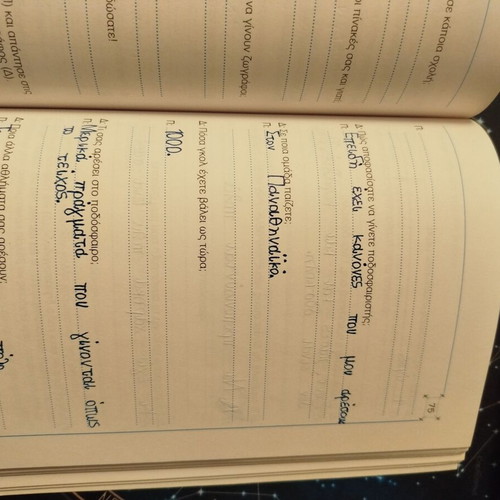 σε κάποια σχολή
οι πίνακές σας και γιατί
να γίνουν ζωγράφοι
δώσατε!
) και απάντησε στις
(Δ)
75
Π:
Δ: Πώς αποφασίσατε να γίνετε ποδοσφαιριστής;
Π: Επειδή έχει κανόνες που μου αρέσουν
Δ: Σε ποια ομάδα παίζετε;
Π: Στον Παναθηναϊκό
Δ: Πόσα γκολ έχετε βάλει ως τώρα;
Π: 1000.
Δ: Τι σας αρέσει στο ποδόσφαιρο;
Π: Μερικά πράγματα που γίνονται όπως
το τείχος.
άλλα αθλήματα σας αρέσουν;